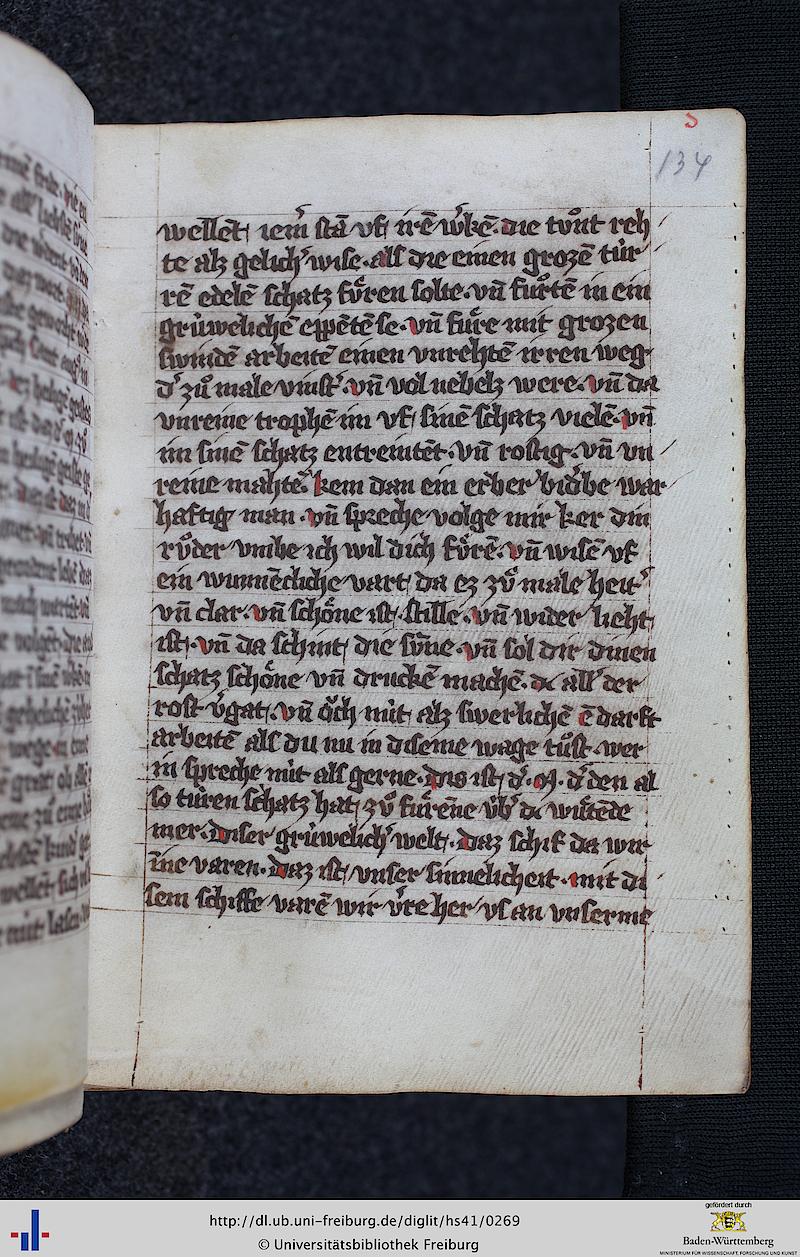 S
134
wellēt iem̄ stā vf irē w̓kē. die tvͦnt reh
te alz gelich̓ wise. als die einen grozē tv́r
rē edelē schatz fv́ren solte. vn̄ fuͦrtē in ein
grúwelichē
se. vn̄ fuͤre mit grozen
swindē arbeitē einen vnrehtē irren weg
d̓ zuͦ male vinst̓. vn̄ vol nebelz were. vn̄ da
vnreine trophē im vf sinē schatz vielē. vn̄
im sinē schatz entreintēt. vn̄ rostig. vn̄ vn
reine mahtē. kem dan ein erber bid̓be war
haftig man. vn̄ spreche volge mir ker din
rvͦder vmbe ich wil dich fv́rē. vn̄ wisē vf
ein wunnēcliche vart da ez zvͦ male heit̓
vn̄ clar. vn̄ schoͤne ist. stille. vn̄ wider lieht
ist. vn̄ da schint die sv̄ne. vn̄ sol dir dinen
schatz schoͤne vn̄ druckē machē. dc all̓ der
rost v̓gat. vn̄ oͮch nút alz swerlichē ē darft
arbeitē als du nu in diseme wage tuͦst. wer
in spreche nút als gerne. Dis ist d̓. M. d̓ den al
so túren schatz hat zvͦ fuͤrēne v́b̓ dc wuͤtēde
mer. Diser grúwelich̓ welt. Daz schif da wir
īne varen. Daz ist vnser sinnelicheit. mit di
sem schiffe varē wir v̓re her vs an vnserme
http://dl.ub.uni-freiburg.de/diglit/hs41/0269
© Universitätsbibliothek Freiburg
gefördert durch
Baden-Württemberg
MINISTERIUM FÜR WISSENSCHAFT, FORSCHUNG UND KUNST